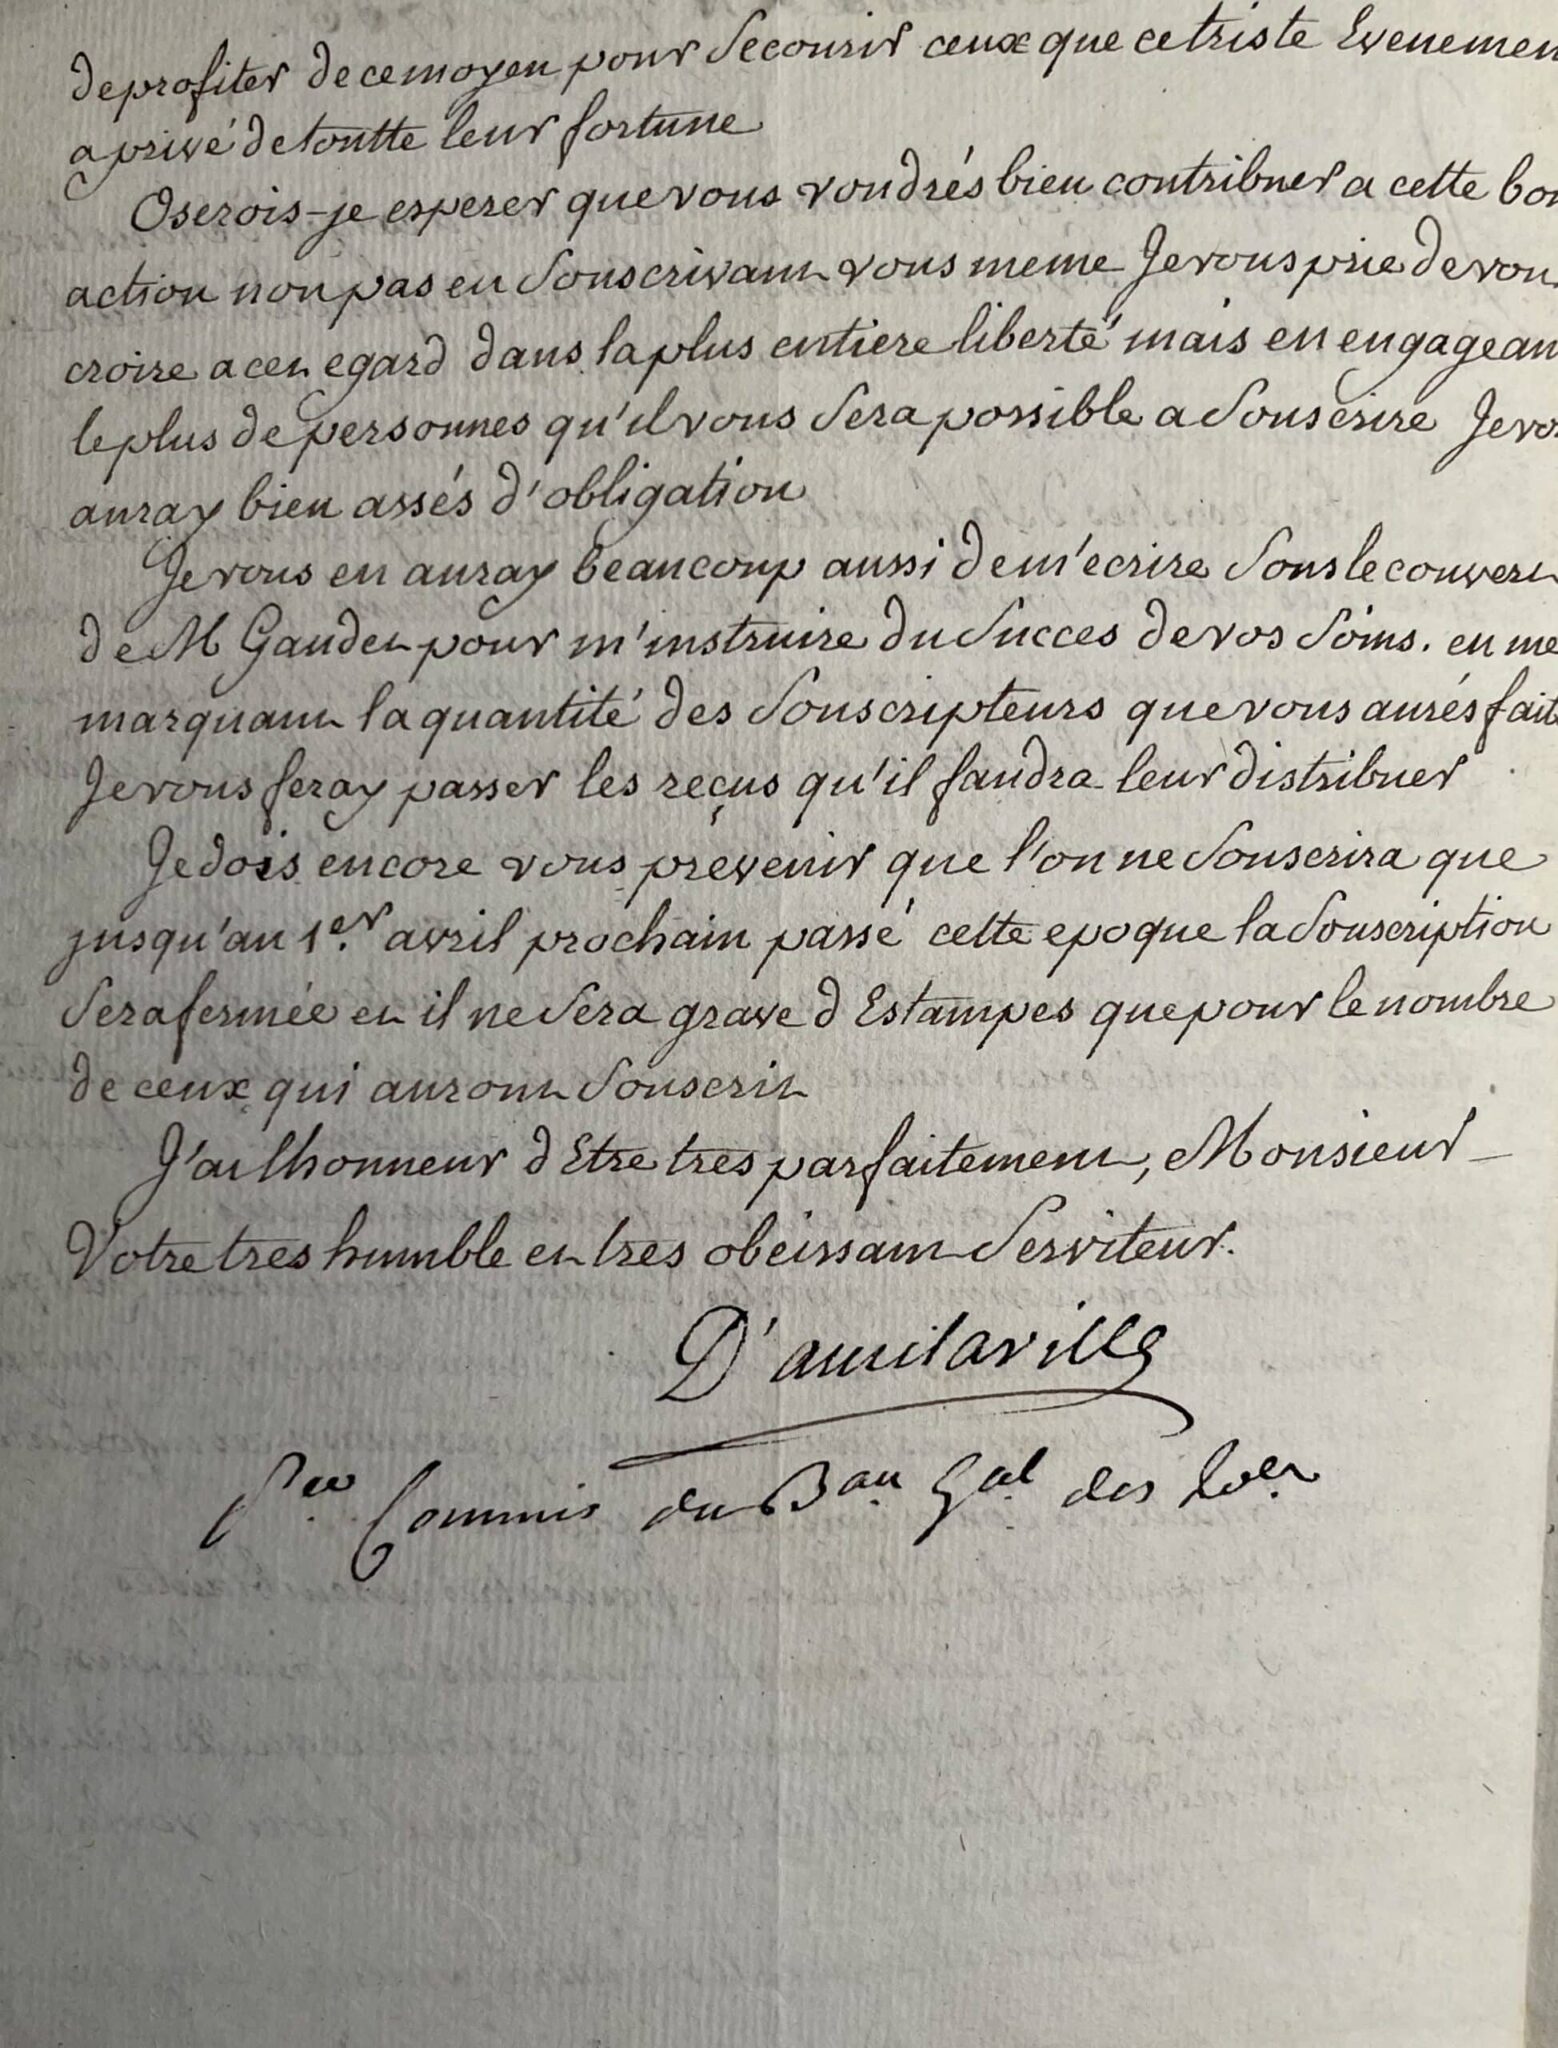 de profiter de ce moyen pour Secourir ceux que ce triste Evenemen
a privé de toutte leur fortune
Oserois-je esperer que vous voudrés bien contribuer a cette bon
action non pas en Souscrivant vous meme Je vous prie de vou
croire a cet egard dans la plus entiere liberté mais en engagean
le plus de personnes qu'il vous Sera possible a Souscrire Je vo
auray bien assés d'obligation
Je vous en auray beaucoup aussi de m'ecrire Sous le couvert
de M Gaudet pour m'instruire du Succes de vos Soins. en me
marquant la quantité des Souscripteurs que vous aurés fait
Je vous feray passer les reçus qu'il faudra leur distribuer
Je dois encore vous prevenir que l'on ne Souscrira que
jusqu'au 1er. avril prochain passé cette epoque la Souscription
Sera fermée et il ne Sera gravé d Estampes que pour le nombre
de ceux qui auront Souscrit
J'ai lhonneur d Etre tres parfaitement, Monsieur
Votre tres humble et tres obeissant Serviteur.
Commis du Bau Gal des